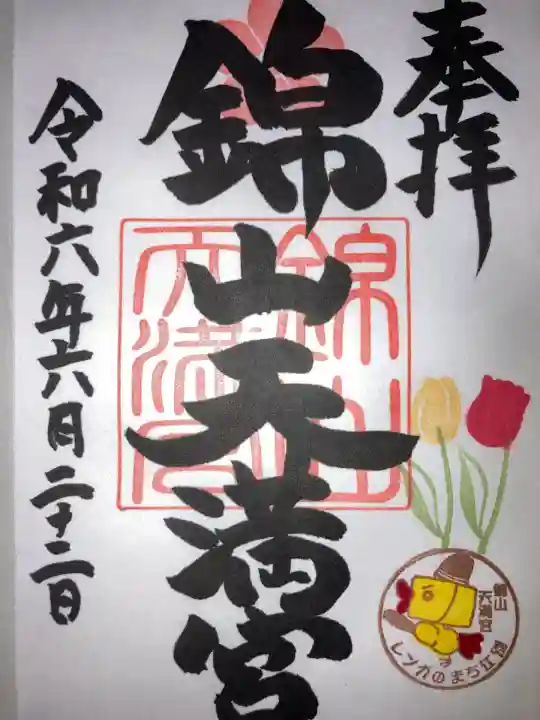 奉拝
錦山天満宮
錦山
天満宮
令和六年六月二十二日
錦山
天満宮
レンガのまち江別